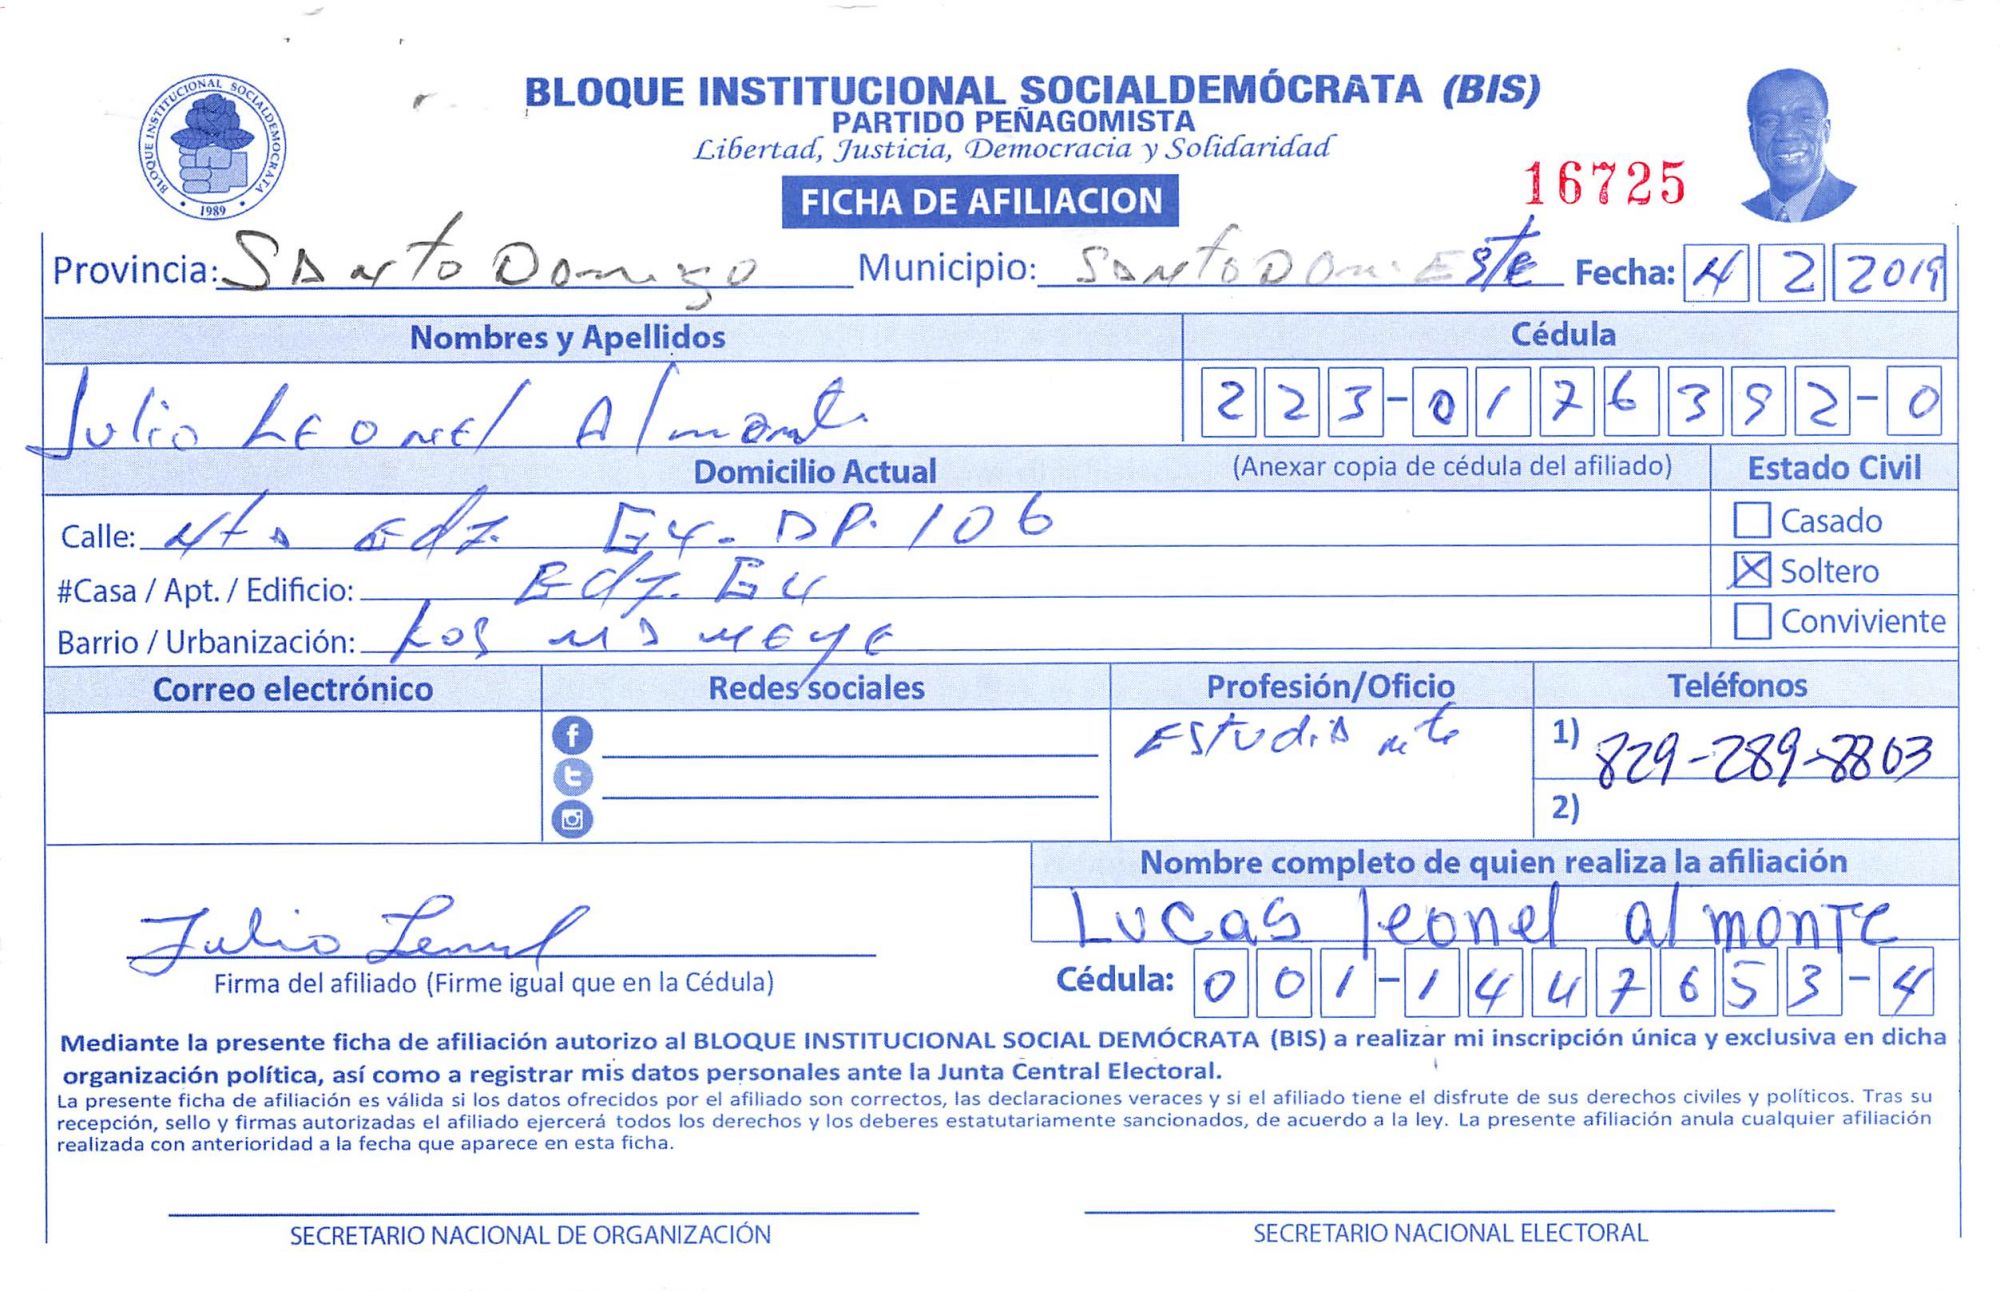 BLOQUE INSTITUCIONAL SOCIALDEMÓCRATA (BIS)
PARTIDO PEÑAGOMISTA
Libertad, Justicia, Democracia y Solidaridad
BLOQUE INSTITUCIONAL SOCIALDEMOCRATA
1989
FICHA DE AFILIACION
16725
Provincia: Santo Domingo Municipio: Santo Dom. Este Fecha: 4 2 2019
Nombres y Apellidos Cédula
Julio Leonel Almonte 223-0176392-0
Domicilio Actual (Anexar copia de cédula del afiliado) Estado Civil
Calle: Edf. E4. DP. 106 Casado
#Casa / Apt. / Edificio: Edf. E4 Soltero
Barrio / Urbanización: Los Mameye Conviviente
Correo electrónico Redes sociales Profesión/Oficio Teléfonos
Estudiante 1) 829-289-8803
2)
Nombre completo de quien realiza la afiliación
Lucas leonel almonte
Julio Leonel
Firma del afiliado (Firme igual que en la Cédula) Cédula: 001-1447653-4
Mediante la presente ficha de afiliación autorizo al BLOQUE INSTITUCIONAL SOCIAL DEMÓCRATA (BIS) a realizar mi inscripción única y exclusiva en dicha
organización política, así como a registrar mis datos personales ante la Junta Central Electoral.
La presente ficha de afiliación es válida si los datos ofrecidos por el afiliado son correctos, las declaraciones veraces y si el afiliado tiene el disfrute de sus derechos civiles y políticos. Tras su
recepción, sello y firmas autorizadas el afiliado ejercerá todos los derechos y los deberes estatutariamente sancionados, de acuerdo a la ley. La presente afiliación anula cualquier afiliación
realizada con anterioridad a la fecha que aparece en esta ficha.
SECRETARIO NACIONAL DE ORGANIZACIÓN SECRETARIO NACIONAL ELECTORAL